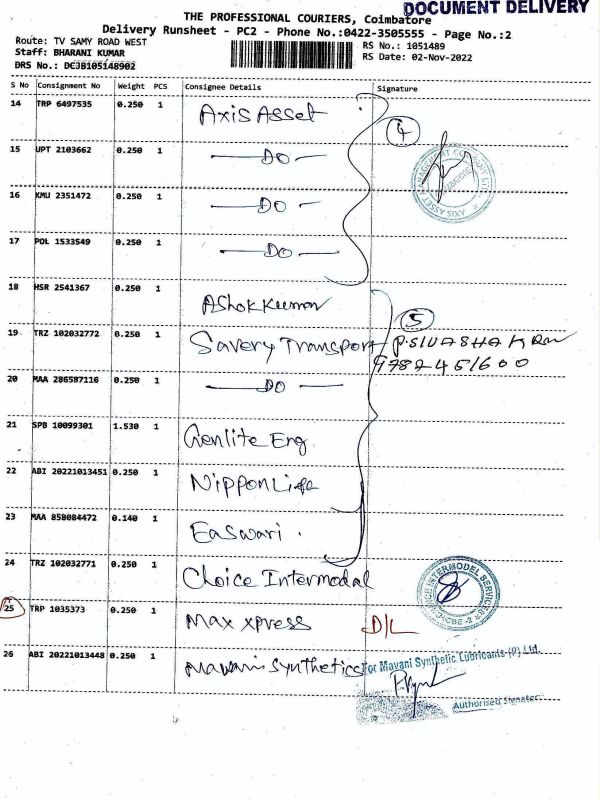 DOCUMENT DELIVERY
THE PROFESSIONAL COURIERS, Coimbatore
Delivery Runsheet - PC2 - Phone No.:0422-3505555 - Page No.:2
Route: TV SAMY ROAD WEST RS No.: 1051489
Staff: BHARANI KUMAR RS Date: 02-Nov-2022
DRS No.: DCJB105148902
S No Consignment No Weight PCS Consignee Details Signature
14 TRP 6497535 0.250 1 Axis Asset 4
15 UPT 2103662 0.250 1 —DO—
16 KMU 2351472 0.250 1 —DO—
17 POL 1533549 0.250 1 —DO—
18 HSR 2541367 0.250 1 Ashok Kumar 5
19 TRZ 102032772 0.250 1 Savery Transport P.SIVASHAKRan
9782451600
20 MAA 286587116 0.250 1 —DO—
21 SPB 10099301 1.530 1 Genlite Eng
22 ABI 20221013451 0.250 1 Nippon Life
23 MAA 858084472 0.140 1 Easwari.
24 TRZ 102032771 0.250 1 Choice Intermodal
25 TRP 1035373 0.250 1 Max xpress D/L
26 ABI 20221013448 0.250 1 Mavani Synthetics For Mavani Synthetic Lubricants (P) Ltd.
Authorised Signatory